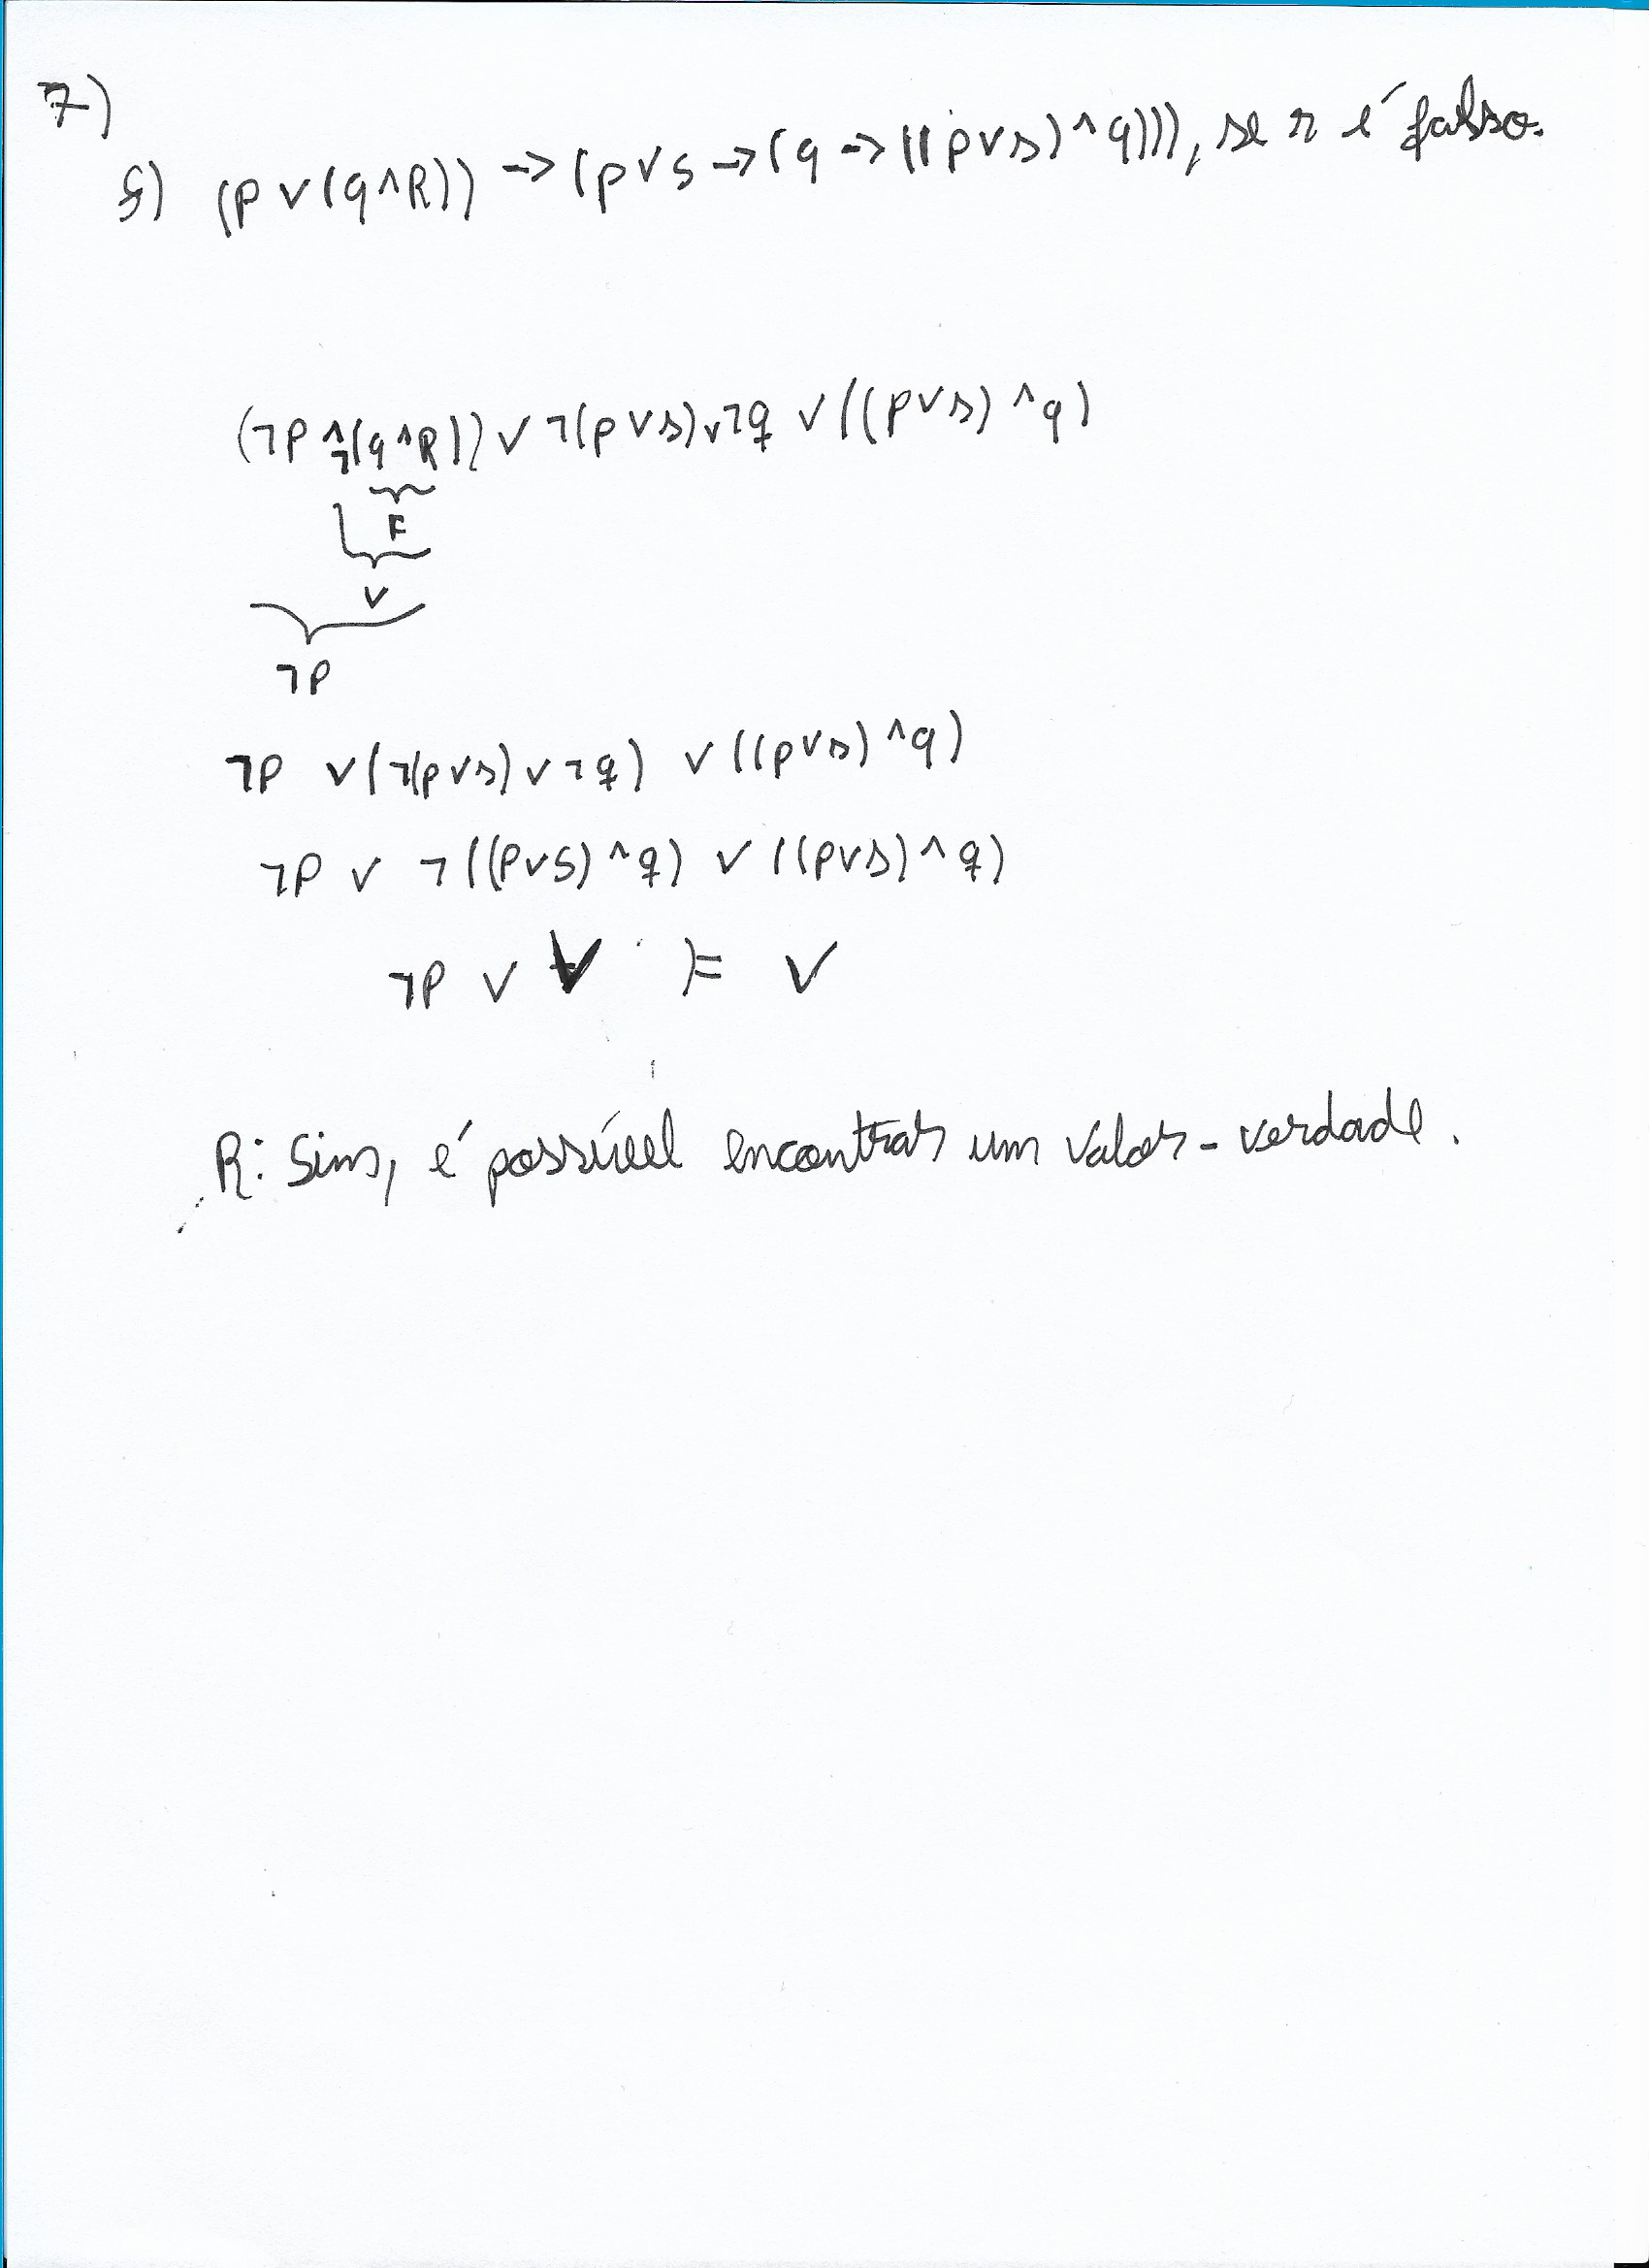 7)
f) (p v (q ^ R)) -> (p v s -> (q -> ((p v s) ^ q))), se r é falso.
(¬P ^ ¬(q ^ R)) v ¬(p v s) v ¬q v ((p v s) ^ q)
F
V
¬P
¬P v (¬(p v s) v ¬q) v ((p v s) ^ q)
¬P v ¬((p v s) ^ q) v ((p v s) ^ q)
¬P v V ⊨ V
R: Sim, é possível encontrar um valor-verdade.